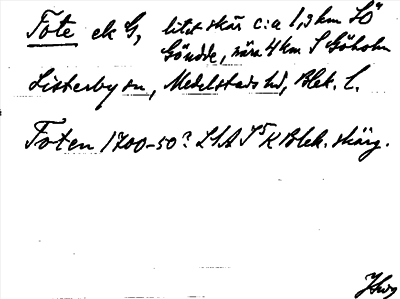 Fote ek G, litet skär c:a 1,3 km SÖ
Göudde, nära 4 km S Göholm
Listerby sn, Medelstads hd, Blek. l.
Foten 1700-50? LSA S5 K Blek. skärg.